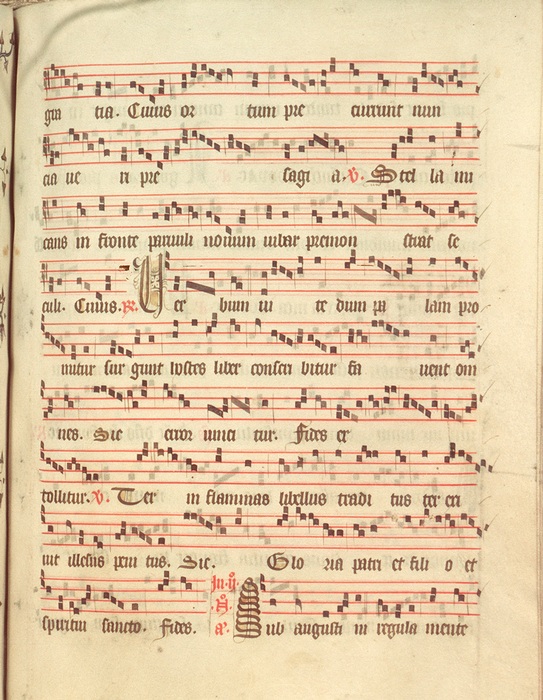 gra tia. Cuius or tum pre currunt nun
cia ue ri pre sagi a. v. Stel la mi
cans in fronte paruuli nouum iubar premon strat se
culi. Cuius. R. Ver bum ui te dum pa lam pro
mitur sur gunt hostes liber conscri bitur fa uent om
nes. Sic error uinci tur. Fides er
tollitur. v. Ter in flammas libellus tradi tus ter exi
uit illesus peni tus. Sic. Glo ria patri et fili o et
spiritui sancto. Fides. In ij. N. a. Sub augusti ni regula mente